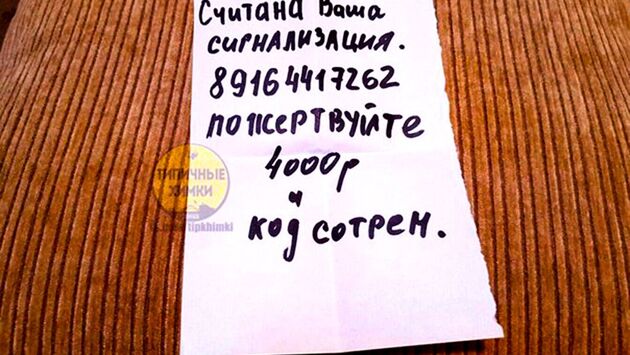 Считана Ваша
сигнализация.
89164417262
пожертвуйте
4000р
и
код сотрем.
ТИПИЧНЫЕ
ХИМКИ
tipkhimki